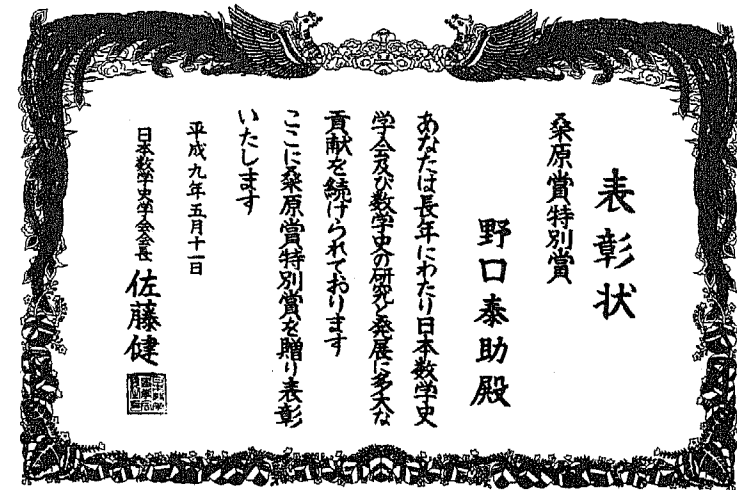 表彰状
桑原賞特別賞
野口泰助殿
あなたは長年にわたり日本数学史
学会及び数学史の研究と発展に多大な
貢献を続けられております
ここに桑原賞特別賞を贈り表彰
いたします
平成九年五月十一日
日本数学史学会会長 佐藤健一